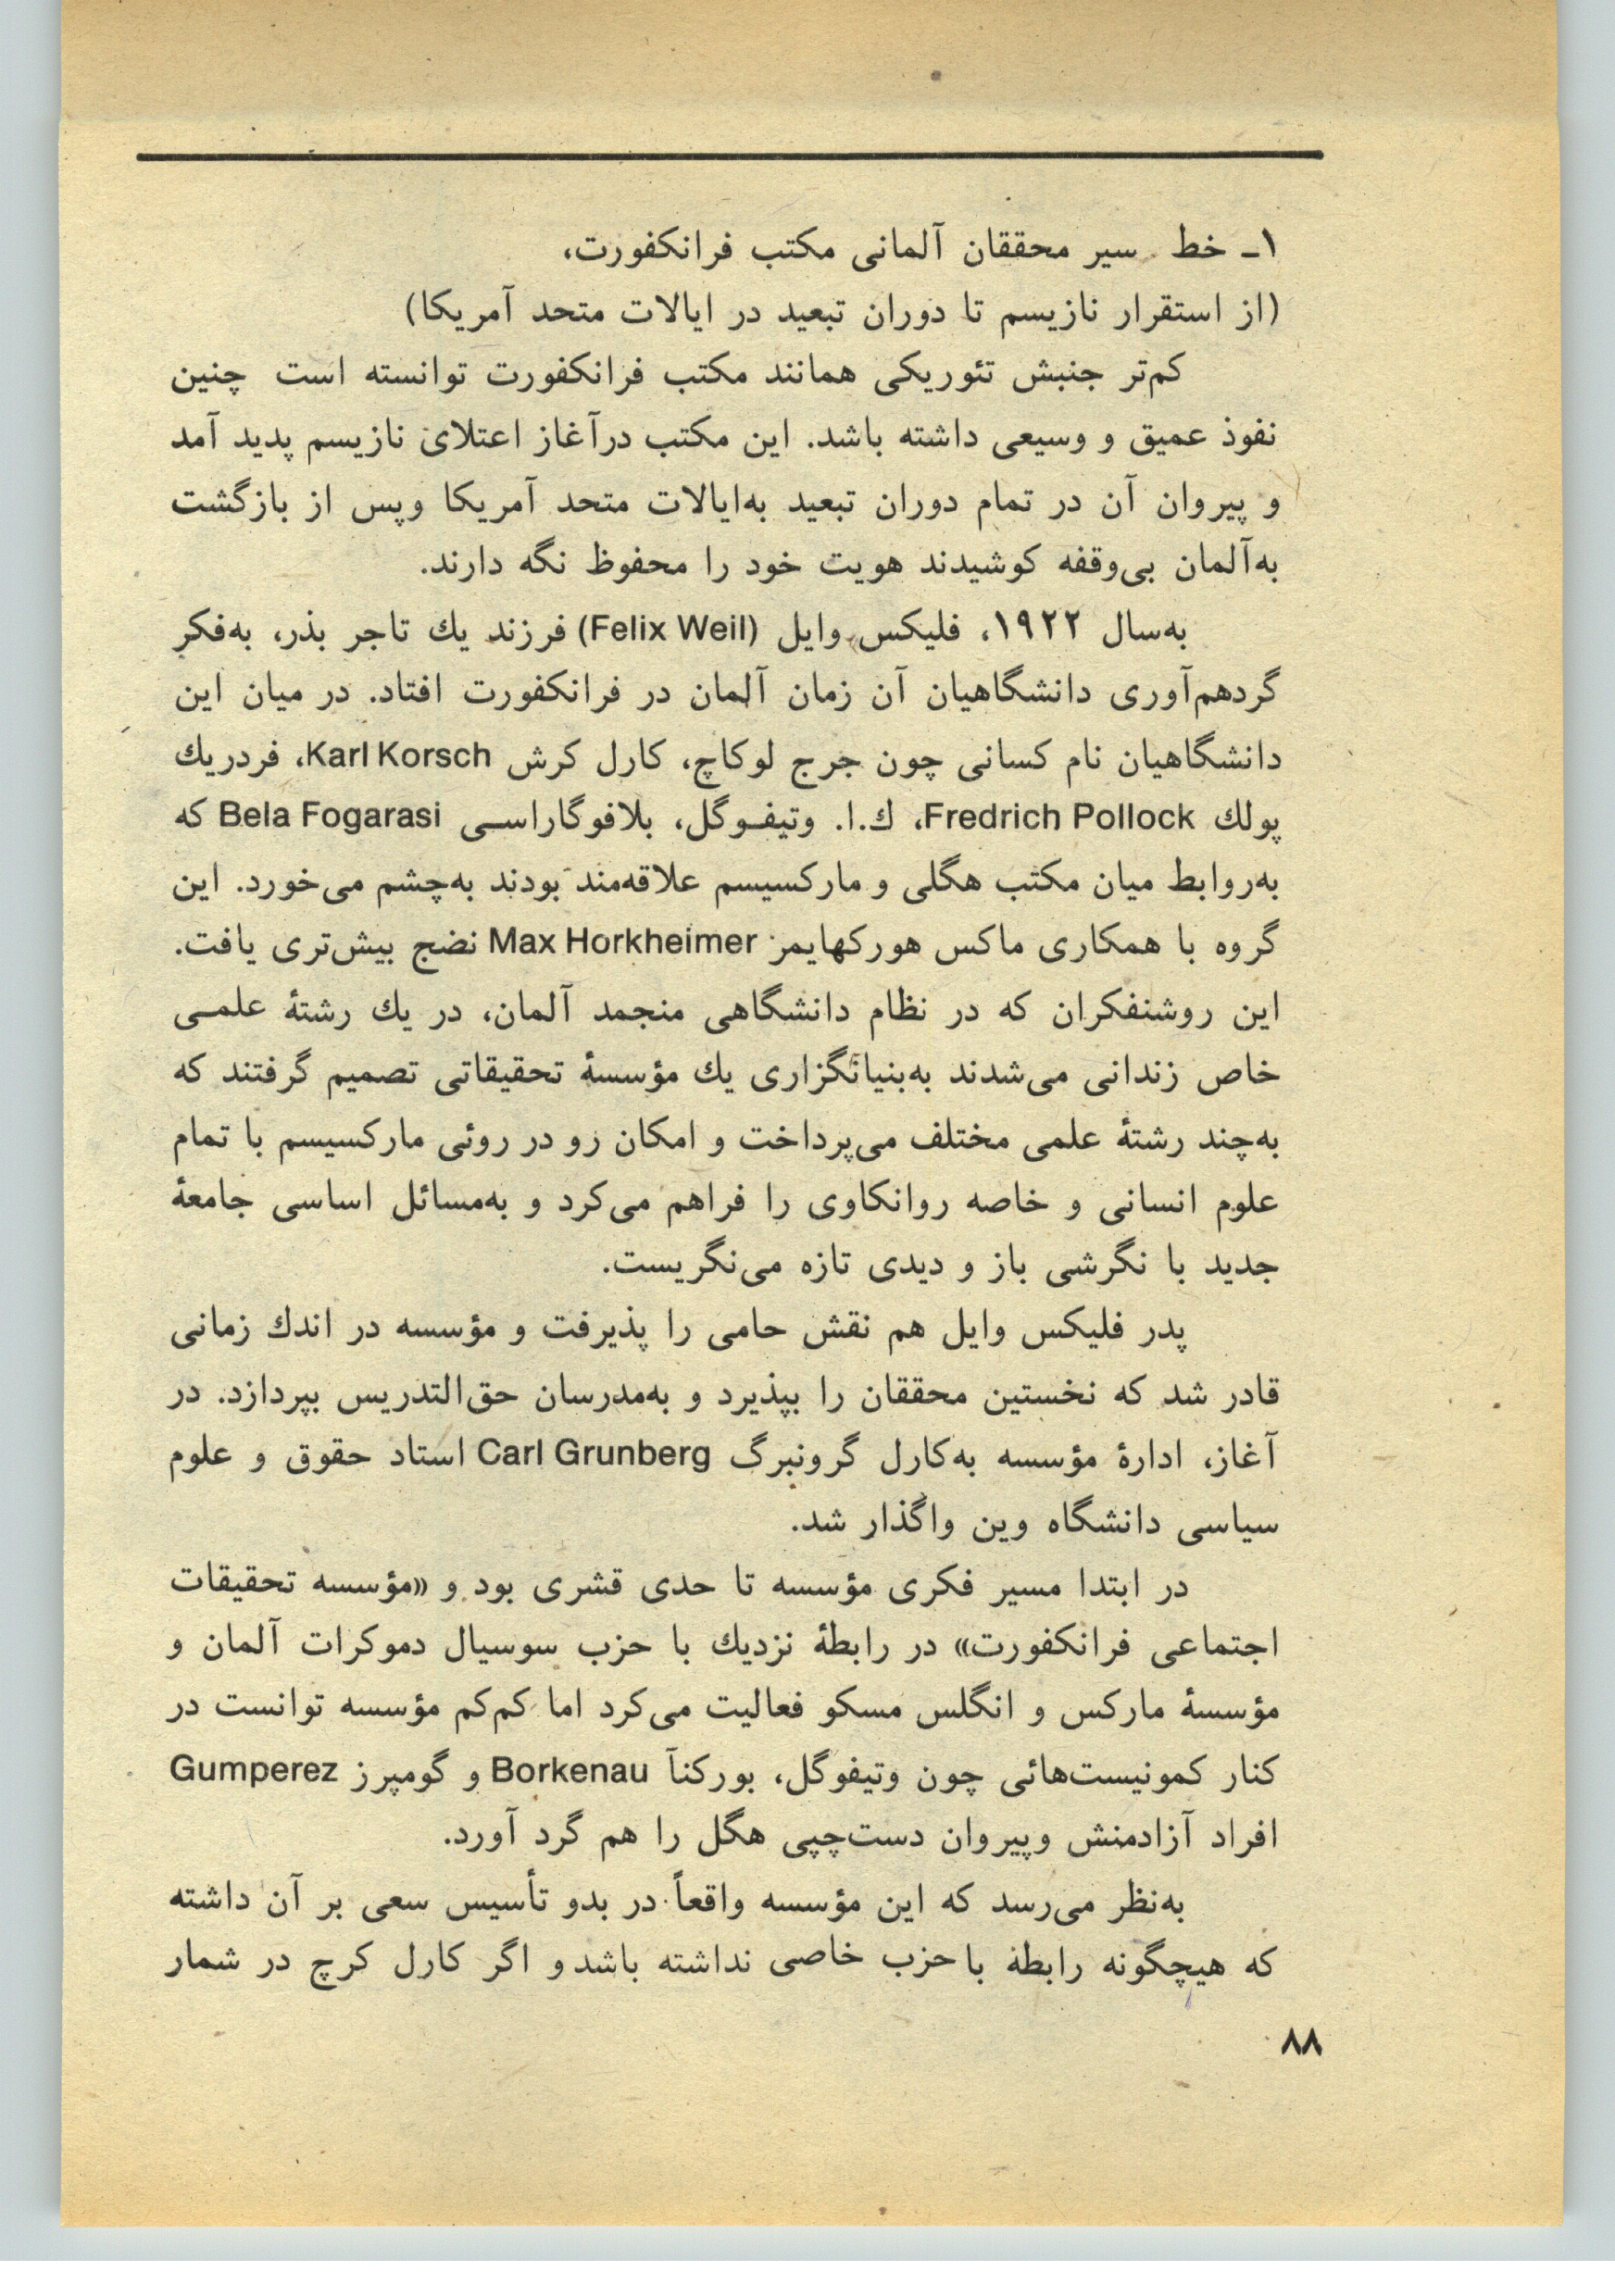 ۱ـ خط سیر محققان آلمانی مکتب فرانکفورت،
(از استقرار نازیسم تا دوران تبعید در ایالات متحد آمریکا)
کم‌تر جنبش تئوریکی همانند مکتب فرانکفورت توانسته است چنین
نفوذ عمیق و وسیعی داشته باشد. این مکتب درآغاز اعتلای نازیسم پدید آمد
و پیروان آن در تمام دوران تبعید به‌ایالات متحد آمریکا وپس از بازگشت
به‌آلمان بی‌وقفه کوشیدند هویت خود را محفوظ نگه دارند.
به‌سال ۱۹۲۲، فلیکس وایل (Felix Weil) فرزند یك تاجر بذر، به‌فکر
گردهم‌آوری دانشگاهیان آن زمان آلمان در فرانکفورت افتاد. در میان این
دانشگاهیان نام کسانی چون جرج لوکاچ، کارل کرش Karl Korsch، فردریك
پولك Fredrich Pollock، ك.ا. وتیفـوگل، بلافوگاراسـی Bela Fogarasi که
به‌روابط میان مکتب هگلی و مارکسیسم علاقه‌مند بودند به‌چشم می‌خورد. این
گروه با همکاری ماکس هورکهایمر Max Horkheimer نضج بیش‌تری یافت.
این روشنفکران که در نظام دانشگاهی منجمد آلمان، در یك رشتهٔ علمـی
خاص زندانی می‌شدند به‌بنیانگزاری یك مؤسسهٔ تحقیقاتی تصمیم گرفتند که
به‌چند رشتهٔ علمی مختلف می‌پرداخت و امکان رو در روئی مارکسیسم با تمام
علوم انسانی و خاصه روانکاوی را فراهم می‌کرد و به‌مسائل اساسی جامعهٔ
جدید با نگرشی باز و دیدی تازه می‌نگریست.
پدر فلیکس وایل هم نقش حامی را پذیرفت و مؤسسه در اندك زمانی
قادر شد که نخستین محققان را بپذیرد و به‌مدرسان حق‌التدریس بپردازد. در
آغاز، ادارهٔ مؤسسه به‌کارل گرونبرگ Carl Grunberg استاد حقوق و علوم
سیاسی دانشگاه وین واگذار شد.
در ابتدا مسیر فکری مؤسسه تا حدی قشری بود و «مؤسسه تحقیقات
اجتماعی فرانکفورت» در رابطهٔ نزدیك با حزب سوسیال دموکرات آلمان و
مؤسسهٔ مارکس و انگلس مسکو فعالیت می‌کرد اما کم‌کم مؤسسه توانست در
کنار کمونیست‌هائی چون وتیفوگل، بورکنآ Borkenau و گومپرز Gumperez
افراد آزادمنش وپیروان دست‌چپی هگل را هم گرد آورد.
به‌نظر می‌رسد که این مؤسسه واقعاً در بدو تأسیس سعی بر آن داشته
که هیچگونه رابطهٔ با حزب خاصی نداشته باشد و اگر کارل کرچ در شمار
۸۸